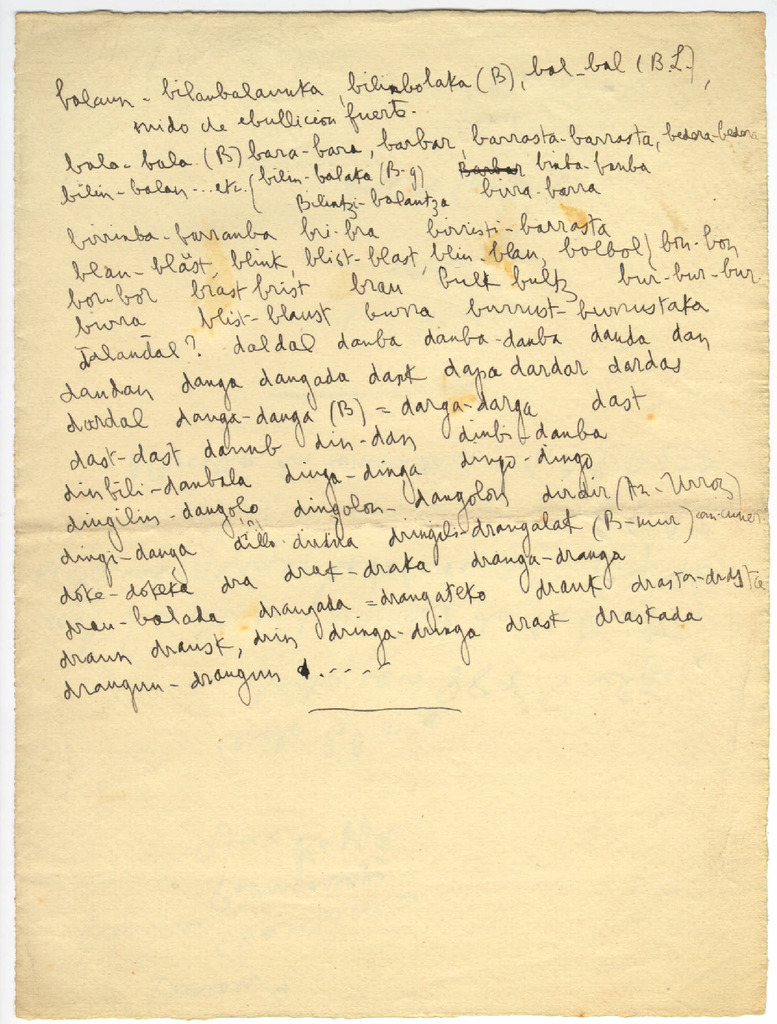 balaun - bilanbalaunka, bilinbolaka (B), bal-bal (B.L.),
ruido de ebullición fuerte.
bala-bala (B) bara-bara, barbar, barrasta-barrasta, bedera-bedera
bilin-balan ... etc. (bilin-balaka (B-g) Barbar binba-banba
Bilintzi-balantza birra-barra
birrinba-barranba bri-bra birristi-barrasta
blau-blast, blink, blist-blast, blin-blan, bolbol) bon-bon
bor-bor brast-brist brau bulk bultz bur-bur-bur
burra blist-blaust burra burrust-burrustaka
dalandal? daldal danba danba-danba danda dan
dandan danga dangada dank dapa dardar dardas
dardal danga-danga (B) = darga-darga dast
dast-dast danub din-dan dinbi-danba
dinbili-danbala dinga-dinga dingo-dingo
dingilin-dangolo dingolon-dangolon dirdir (An-Urroz)
dingi-danga dillo-dilla dringili-drangalak (B-mur)
doke-dokeka dra drak-draka dranga-dranga
drau-balada drangada = drangateko drauk drasta-drasta
draun drausk, drin dringa-dringa drast draskada
drangun-drangun .....